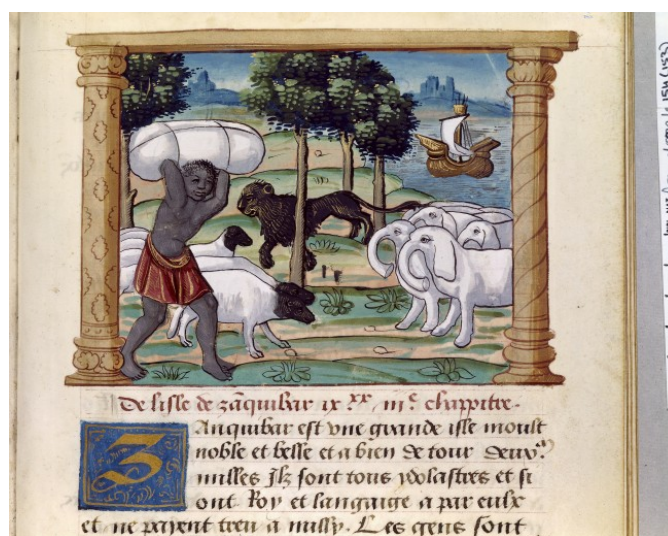 De lisle de zãquibar ix xx iii e chappitre.
ZAnquibar est vne grande isle moult
noble et belle et a bien de tour deux M
milles Ilz sont tous ydolastres et si
ont Roy et langaige a par eulx
et ne payent treu a nully. Les gens sont